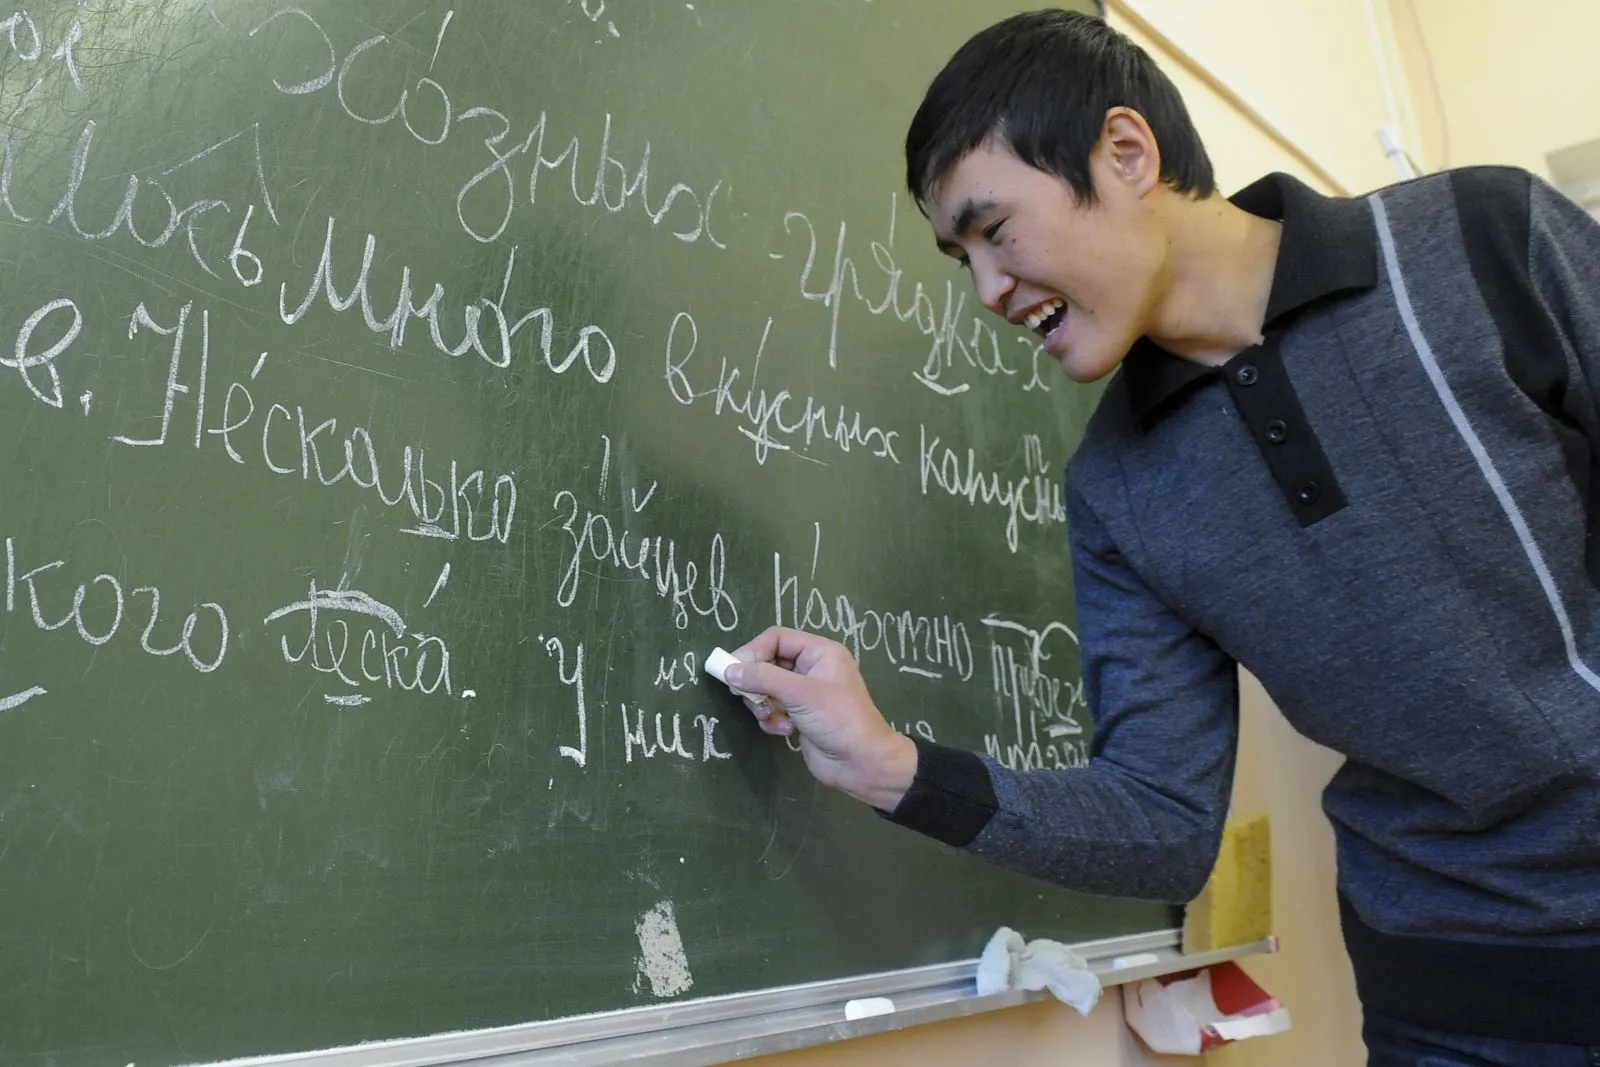 хо́зных -гря́дках
лось мно́го вку́сных капустны
в. Не́скалько за́йцев ра́достно
кого леска́. У них